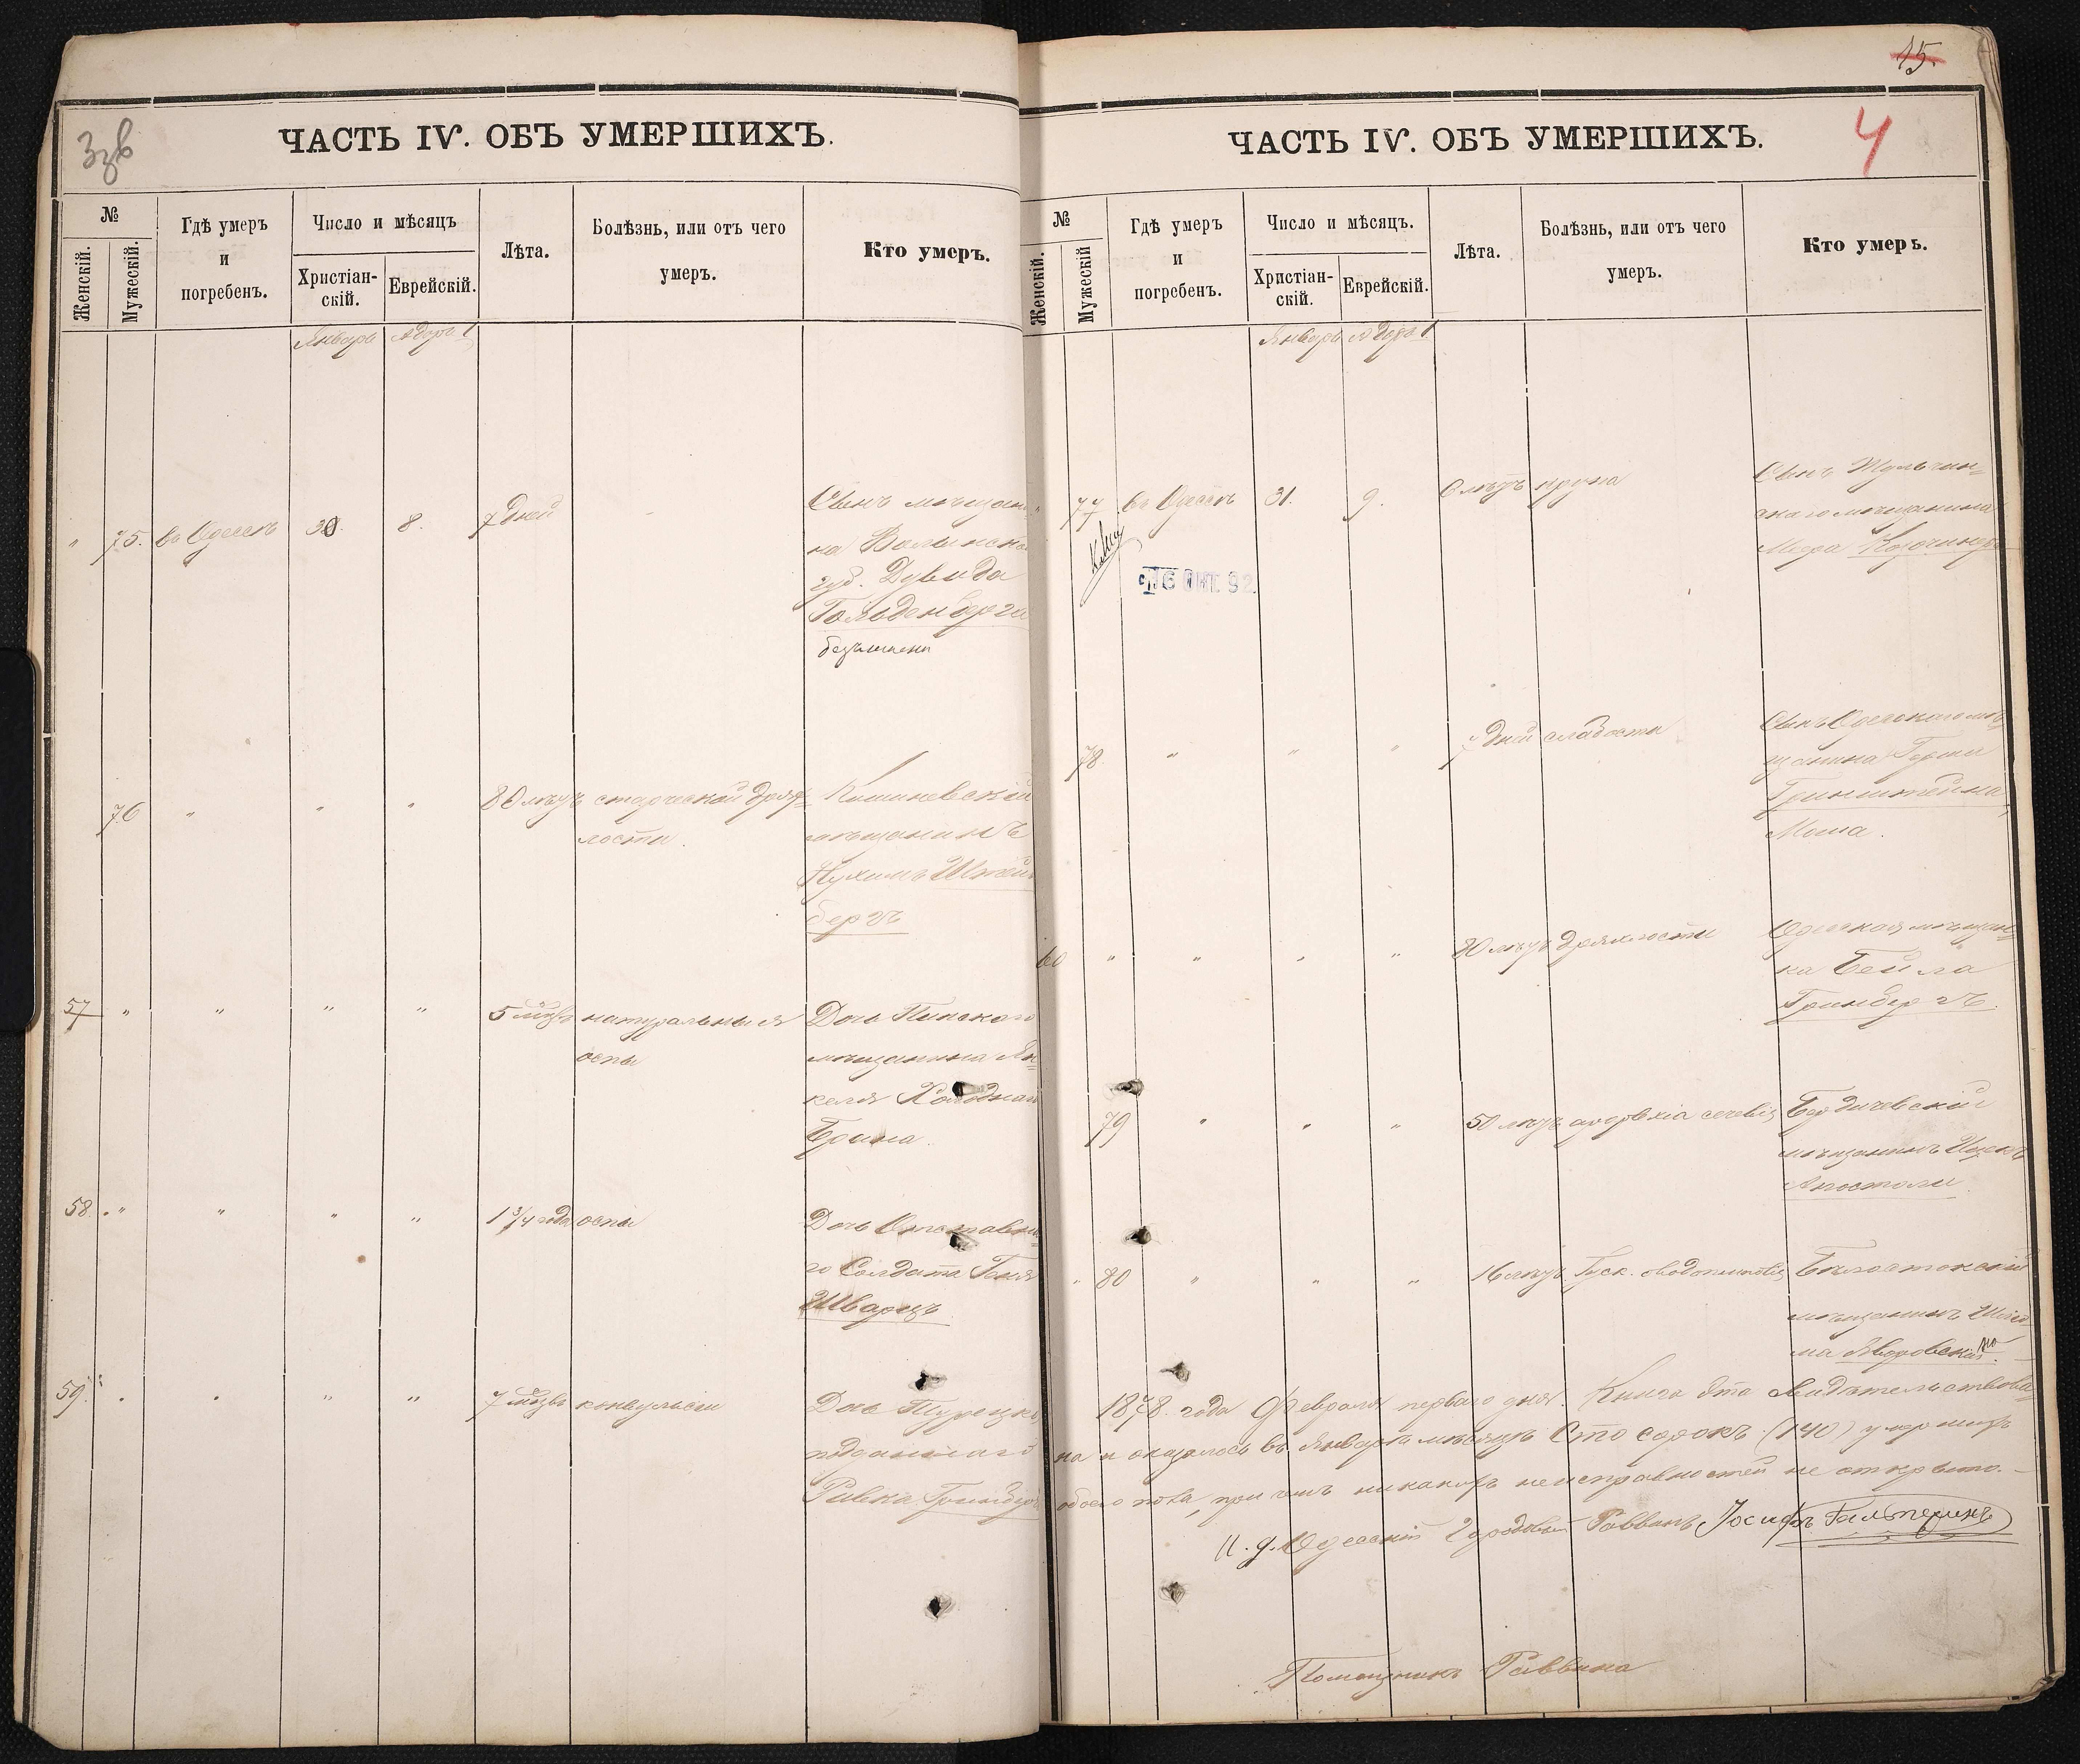 ЧАСТЬ IV. ОБЪ УМЕРШИХЪ.
№
Женскій.
Мужескій.
Гдѣ умеръ
и
погребенъ.
Число и мѣсяцъ
Христіан-
скій.
Еврейскій.
Лѣта.
Болѣзнь, или отъ чего
умеръ.
Кто умеръ.
Январь Адаръ 1
" 75. въ Одессѣ 30. 8. 7 дней
Сынъ мѣщани-
на Волынск
губ. Дувида
Гольденберга
безъимени
76 " " " 80 лѣтъ старческой дрях-
лости.
Кишиневскій
мѣщанинъ
Нухимъ Штейн
бергъ
57 " " " " 5 мѣсц. натуральныя
оспы
Дочь Пинскаго
мѣщанина Ян-
келя Холоднаго
Броша.
58. " " " " 1 3/4 года оспы
Дочь Отставна-
го Солдата Геня
Шварцъ
59. " " " " 7 мѣсц. конвульсіи
Дочь Турецка
подданнаго
Ривка Гринберг
15.
ЧАСТЬ IV. ОБЪ УМЕРШИХЪ.
4
№
Женскій.
Мужескій
Гдѣ умеръ
и
погребенъ.
Число и мѣсяцъ.
Христіан-
скій.
Еврейскій.
Лѣта.
Болѣзнь, или отъ чего
умеръ.
Кто умеръ.
Январь Адаръ 1
" 77 въ Одессѣ 31. 9. 6 лѣтъ крупа
Сынъ Тульчин-
скаго мѣщанина
16 ОКТ. 92
78. " " " 7 дней слабости
Сынъ Одесскаго мѣ-
щанина Герша
Гринштейна,
Моша.
60 " " " " 80 лѣтъ дряхлости
Одесская мѣщан-
ка Бейла
Гринбергъ.
79 " " " 50 лѣтъ
Бердичевскій
мѣщанинъ Ицекъ
Апостоли
" 80 " " " 16 лѣтъ
Бѣлостокскій
мѣщанинъ Шлео-
ма Яворовскій.
1878. года Февраля перваго дня. Книга эта свидѣтельствова-
на и оказалось въ Январѣ мѣсяцѣ Сто сорокъ (140) умершихъ
обоего пола, при чемъ никакихъ неисправностей не открыто.
И. д. Одесскій Городовый Раввинъ Іосифъ Гальперинъ
Помощникъ Раввина